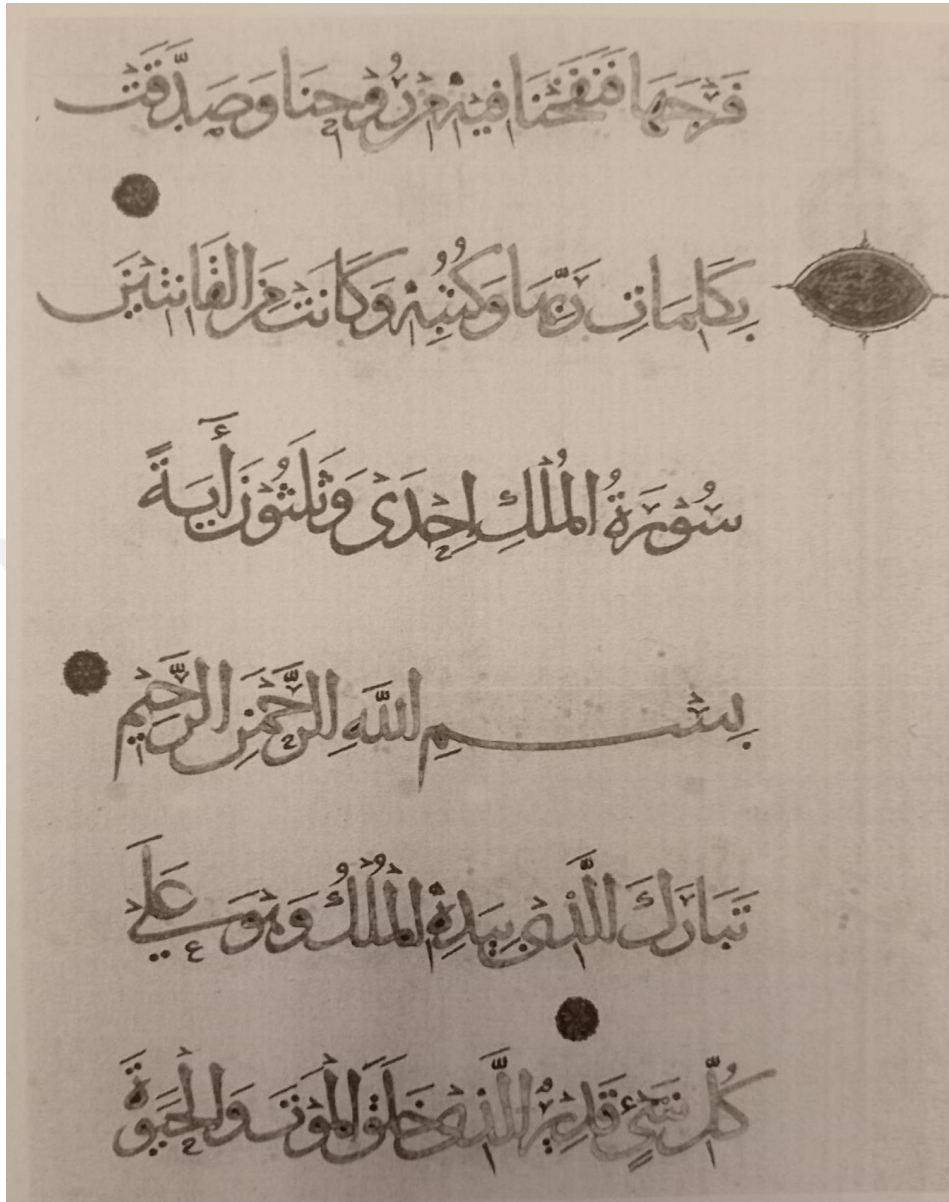 فَرْجَهَا فَنَفَخْنَا فِيهِ مِنْ رُوحِنَا وَصَدَّقَتْ
بِكَلِمَاتِ رَبِّهَا وَكُتُبِهِ وَكَانَتْ مِنَ الْقَانِتِينَ
سُورَةُ الْمُلْكِ إِحْدَى وَثَلٰثُونَ أٰيَةً
بِسْمِ اللَّهِ الرَّحْمٰنِ الرَّحِيمِ
تَبَارَكَ الَّذِي بِيَدِهِ الْمُلْكُ وَهُوَ عَلَى
كُلِّ شَيْءٍ قَدِيرٌ الَّذِي خَلَقَ الْمَوْتَ وَالْحَيٰوةَ